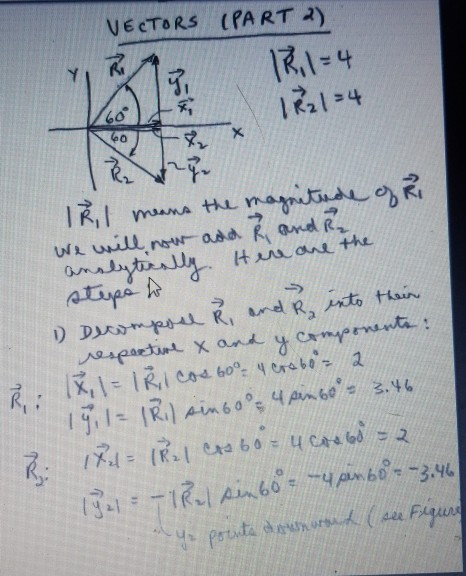 VECTORS (PART 2)
Y R⃗₁ y⃗₁ |R⃗₁| = 4
60° x⃗₁ |R⃗₂| = 4
60 x⃗₂ x
R⃗₂ y⃗₂
|R⃗₁| means the magnitude of R⃗₁
We will now add R⃗₁ and R⃗₂
analytically. Here are the
steps
1) Decompose R⃗₁ and R⃗₂ into their
respective x and y components:
R⃗₁: |X⃗₁| = |R⃗₁| cos 60° = 4 cos 60° = 2
|y⃗₁| = |R⃗₁| sin 60° = 4 sin 60° = 3.46
R⃗₂: |X⃗₂| = |R⃗₂| cos 60° = 4 cos 60° = 2
|y⃗₂| = -|R⃗₂| sin 60° = -4 sin 60° = -3.46
y₂ points downward (see Figure